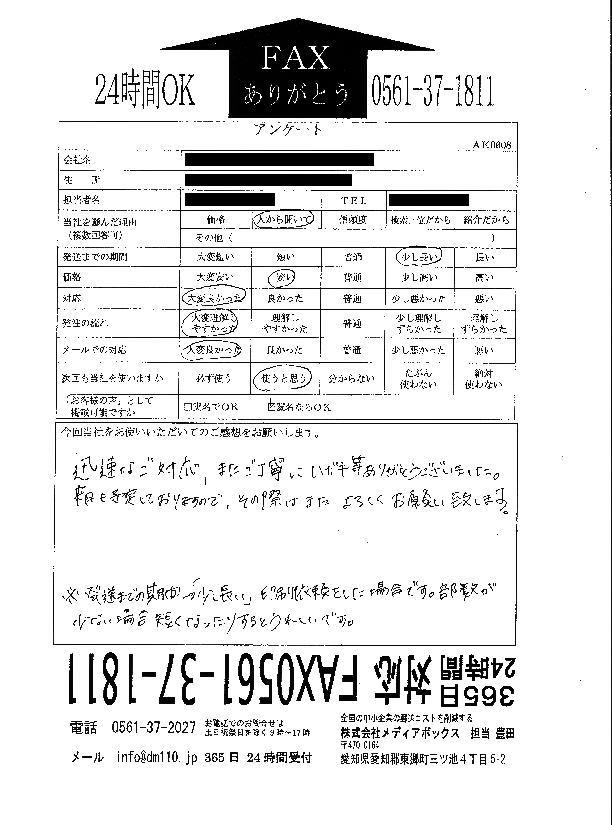 FAX
ありがとう
24時間OK
0561-37-1811
アンケート
AK0808
会社名
住 所
担当者名 TEL
当社を選んだ理由 価格 人から聞いて 信頼度 検索上位だから 紹介だから
(複数回答可)
その他( )
発送までの期間 大変短い 短い 普通 少し長い 長い
価格 大変安い 安い 普通 少し高い 高い
対応 大変良かった 良かった 普通 少し悪かった 悪い
発注の流れ 大変理解しやすかった 理解しやすかった 普通 少し理解しずらかった 理解しずらかった
メールでの対応 大変良かった 良かった 普通 少し悪かった 悪い
次回も当社を使いますか 必ず使う 使うと思う 分からない たぶん使わない 絶対使わない
「お客様の声」として掲載可能ですか □実名でOK ☑匿名ならOK
今回当社をお使いいただいてのご感想をお願いします。
迅速なご対応、またご丁寧に 等ありがとうございました。
予定しておりますので、その際はまた よろしくお願い致します。
※ 発送までの期間が「少し長い」 印刷依頼をした場合です。部数が
少ない場合 短くなったりするとうれしいです。
365日24時間対応 FAX0561-37-1811
電話 0561-37-2027 お電話でのお問合せは
土日祝祭日を除く9時~17時
メール info@dm110.jp 365日 24時間受付
全国の中小企業の郵送コストを削減する
株式会社メディアボックス 担当 豊田
〒470-0164
愛知県愛知郡東郷町三ツ池4丁目5-2